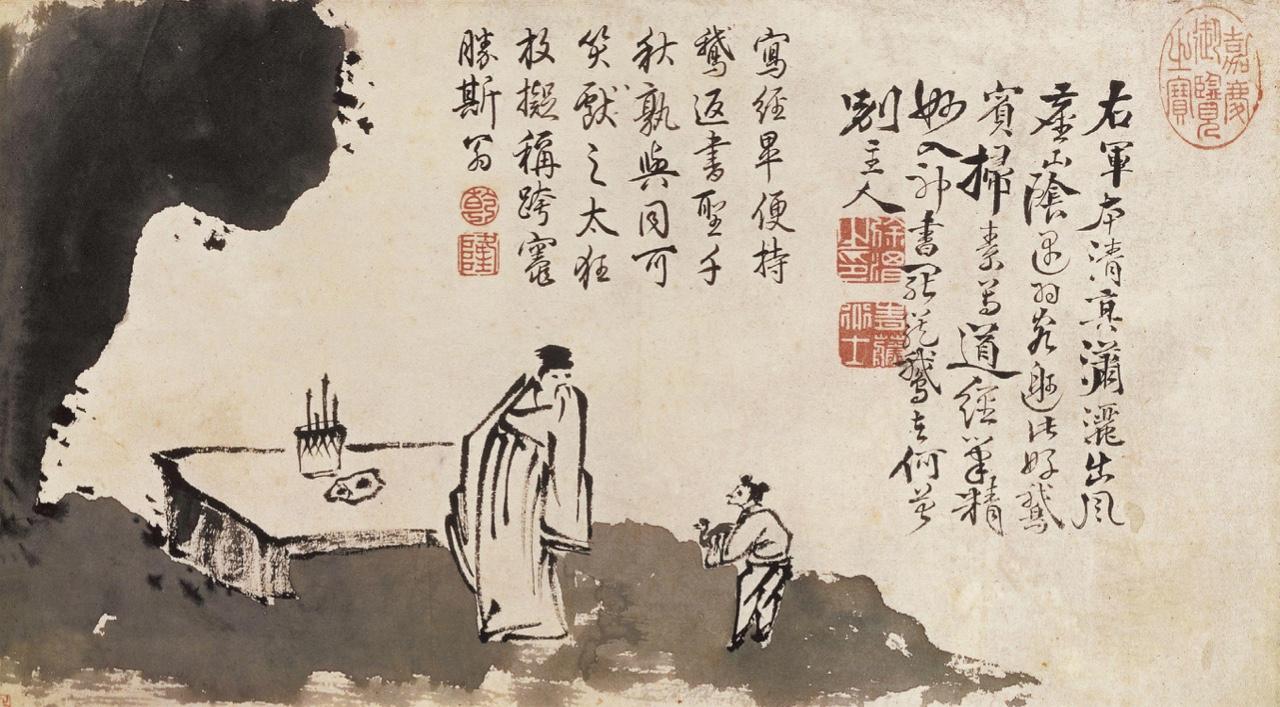 嘉慶御覽之寶
右軍本清真瀟灑出風
塵山陰遇羽客邀此好鵞
賓掃素寫道經筆精
妙入神書罷籠鵞去何曾
別主人
徐渭之印
青藤道士
寫經畢便持
鵞返書聖千
秋孰與同可
笑獻之太狂
放擬稱跨竈
勝斯翁
乾
隆